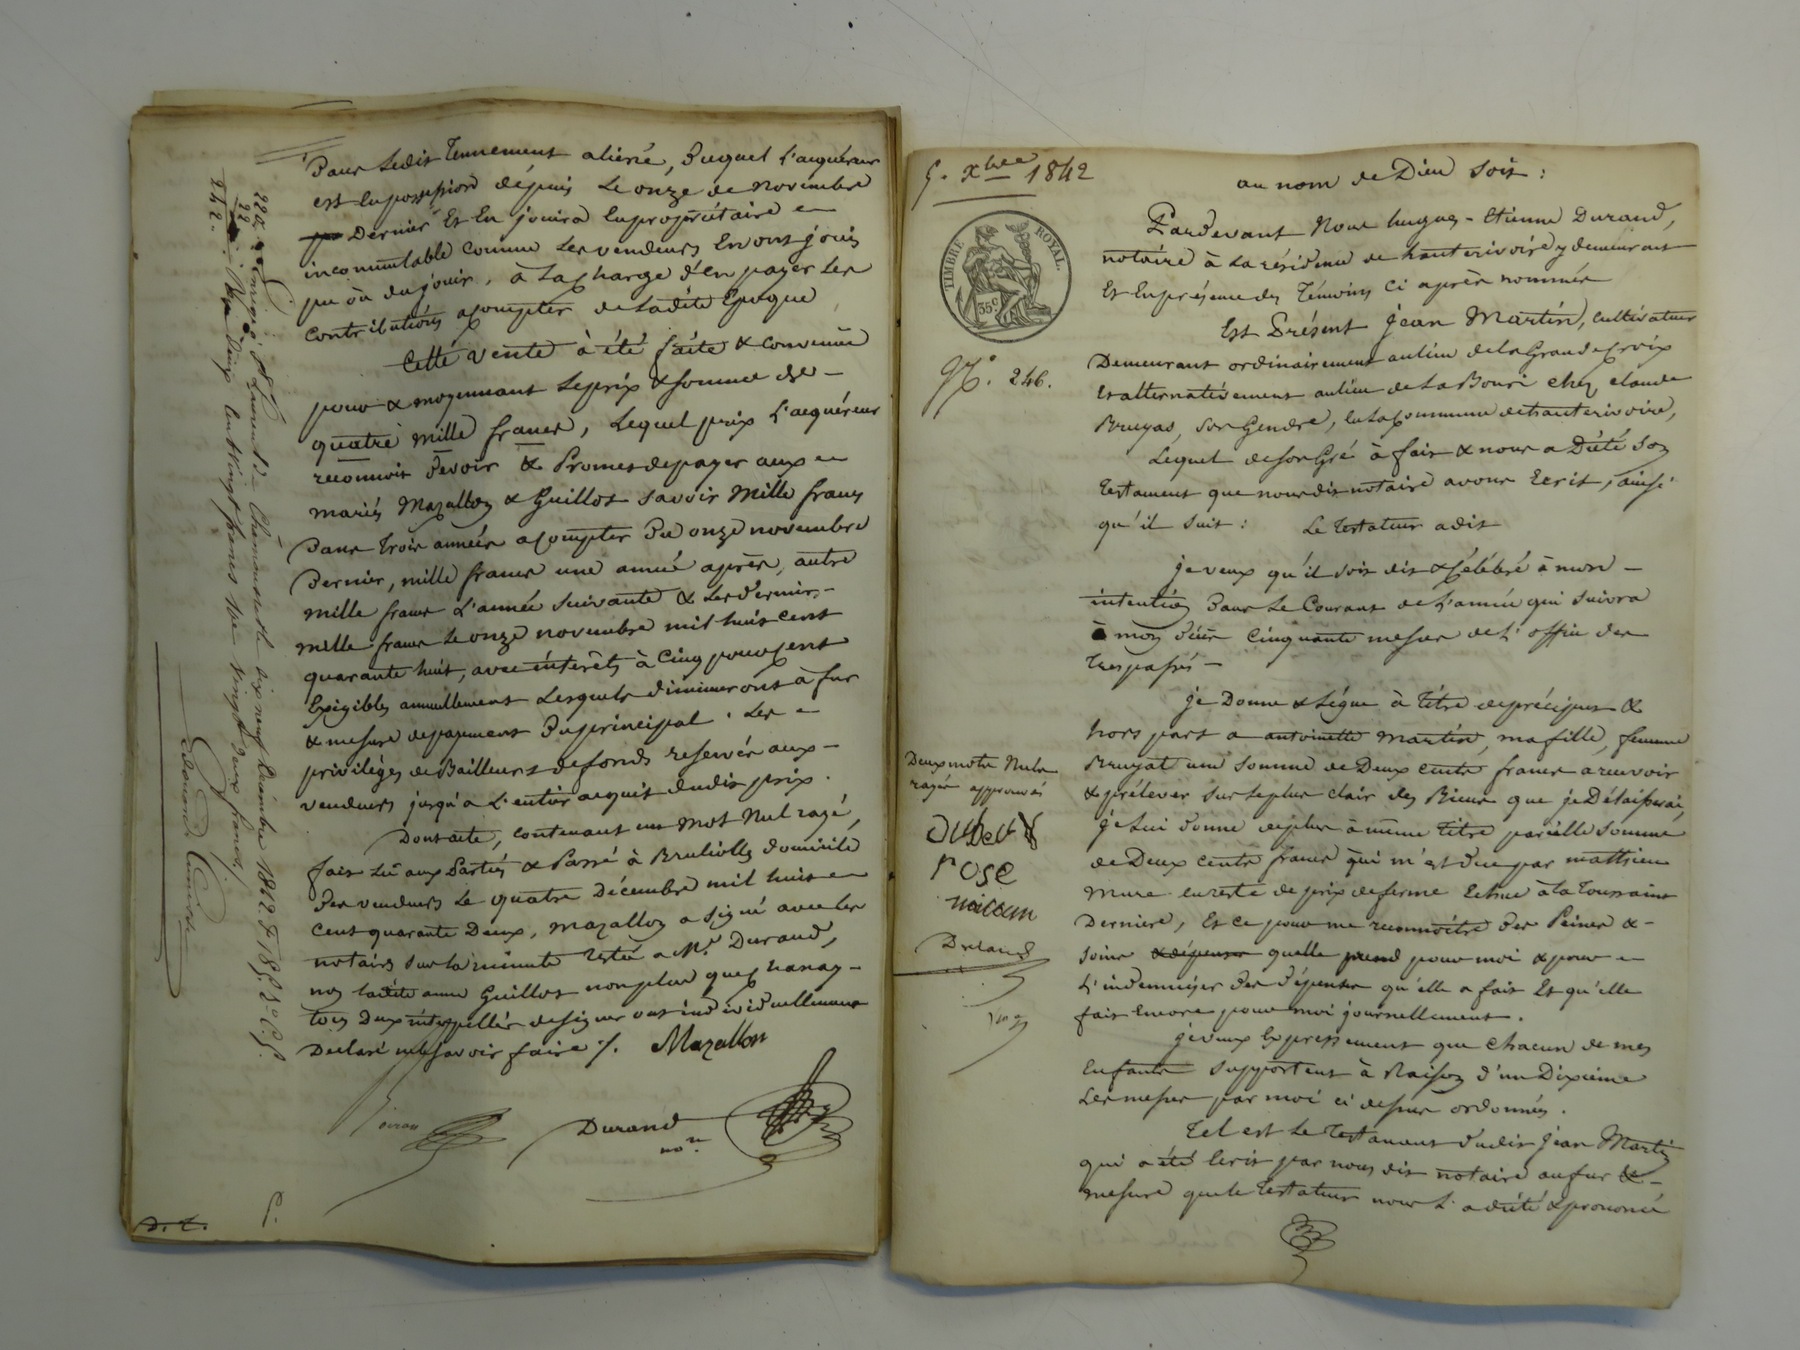 Dans ledit tennement aliéné, duquel l'acquéreur
est en possession dépuis le onze de novembre
Dernier Et En jouira En proprietaire
incommutable comme les vendeurs En ont joui
pu ou du jouir, à la charge d'en payer les
contributions a compter de ladite Epoque
Cette vente à été faite & convenue
pour & moyennant le prix & somme de
quatre mille francs, Lequel prix l'acquéreur
reconnoit devoir & Promet de payer aux
mariés Mazallon & Guillot savoir mille francs
Dans trois années a compter du onze novembre
Dernier, mille francs une année après, autre
mille francs L'année suivante & les derniers
mille francs le onze novembre mil huit cent
quarante huit, avec intérêts à Cinq pour cent
Exigibles annuellement Lesquels diminueront à fur
& mesure de payement Du principal. Les
privilèges de Bailleurs de fonds reservés aux
vendeurs jusqu'a L'entier acquit dudit prix.
Dont acte, contenant un mot Nul rayé,
fait Lu aux Parties & Passé à Brulliolles domicile
Des vendeurs Le quatre Décembre mil huit
cent quarante Deux, mazallon a signé avec les
notaires sur la minute restée a Me. Durand,
non ladite anne Guillot non plus que
tous Deux interpellés de signer ont individuellement
Declaré ne savoir faire ./. Mazallon
Durand
nore
220.
22
242.
Enregistré à St Laurent de Chamousset le dix neuf Décembre 1842. F 185
Reçu Deux cent vingt francs dixe vingt deux francs
5. Xbre 1842
TIMBRE ROYAL.
35c.
No. 246.
au nom de Dieu soit :
Pardevant Nous hugues-Etienne Durand,
notaire à la résidence de hauterivoire y demeurant
Et En présence des Témoins Ci après nommés
Est Présent Jean Martin, cultivateur
Demeurant ordinairement au lieu de la Grande Croix
Et alternativement au lieu de La Bouri chez claude
Bruyas, son Gendre, En La Commune de hauterivoire,
Lequel de son Gré à fait & nous a Dicté son
testament que nous dit notaire avons Ecrit, ainsi
qu'il suit : Le testateur a dit
je veux qu'il soit dit & célébré à mon
intention Dans Le Courant de L'année qui suivra
à mon décès Cinquante messes de L'office des
trespassés
je Donne & Lègue à titre de préciput &
hors part a antoinette Martin, ma fille, femme
Bruyat une somme de Deux cents francs a recevoir
& prélever sur le plus clair des Biens que je Délaisserai,
je Lui donne de plus à même titre pareille somme
de Deux cents francs qui m'est due par mathieu
Mure en reste de prix de ferme Echue à la Toussaint
Derniere, Et ce pour me reconnoître des Peines &
soins & dépenses quelle prend pour moi & pour
L'indemniser des dépenses qu'elle a fait Et qu'elle
fait Encore pour moi journellement.
je veux Expressement que chacun de mes
Enfants supportent à Raison d'un Dixieme
Les messes par moi ci dessus ordonnées.
Tel est Le testament dudit Jean Martin
qui a été Ecrit par nous dit notaire au fur &
mesure que le testateur nous L'a dicté & prononcé
Deux mots Nuls
rayés approuvés
rose
Durand